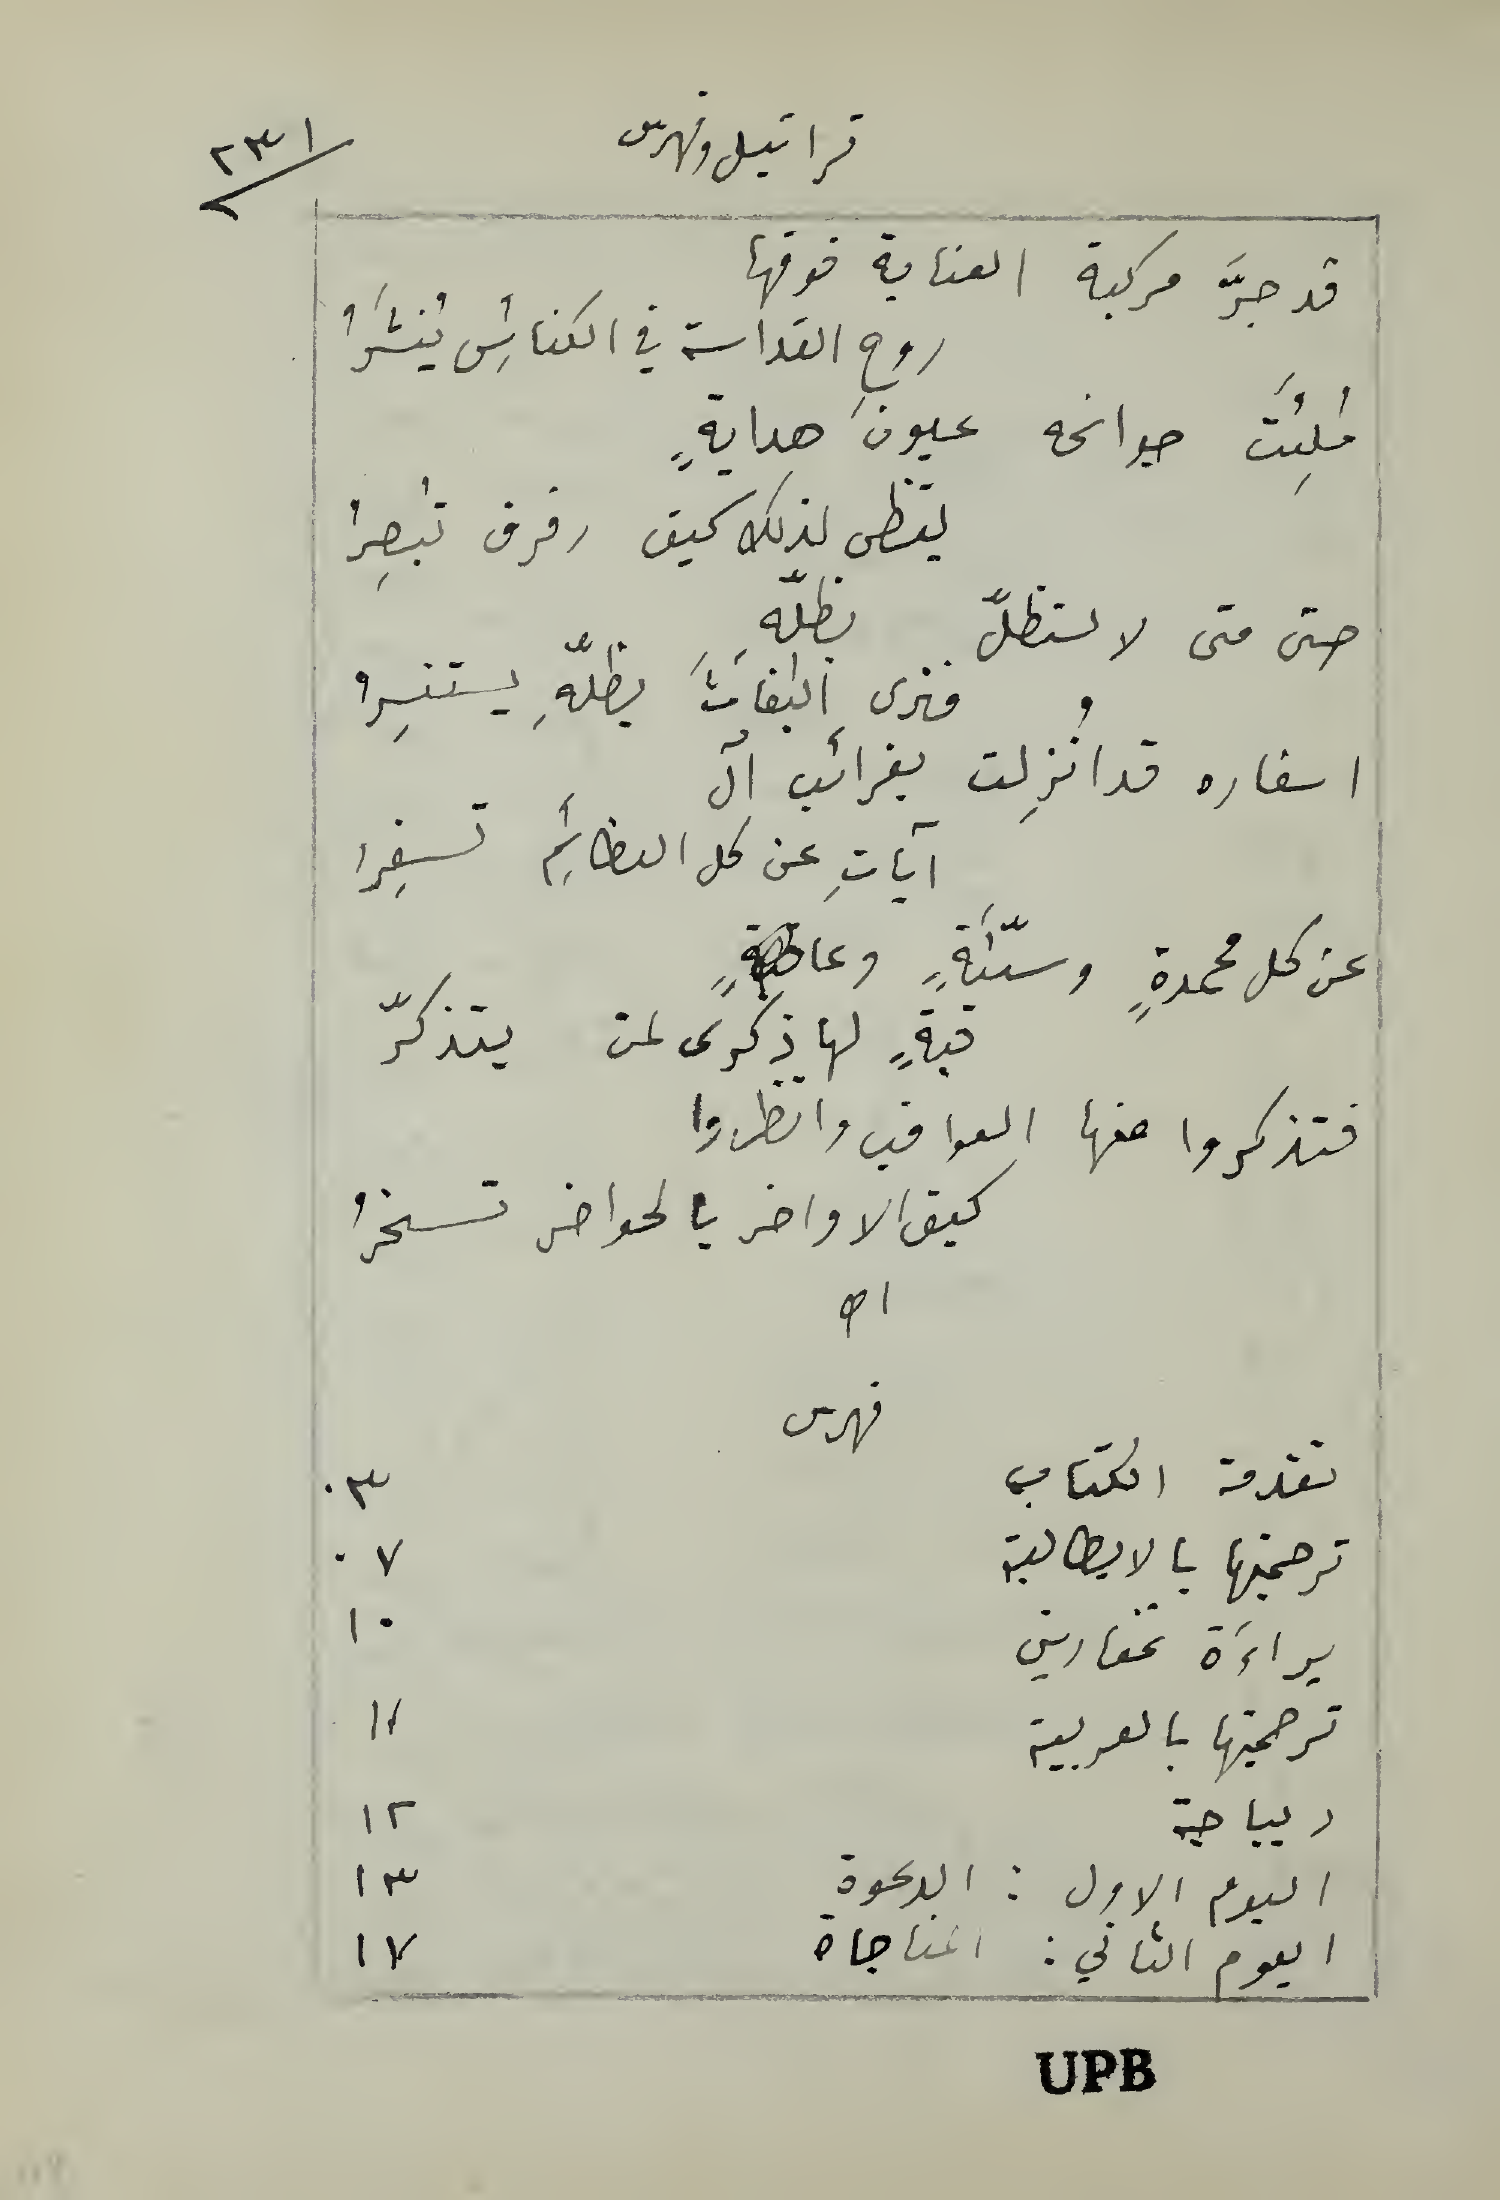 تراتيل وفهرس
٢٣١
قد جرَّ مركبة العناية فوقها
روح القداسة في الكنائس يُنشَرُ
مُلِئَت جوانحه عيونَ هدايةٍ
يقظى لذلك كيف رفرف تُبصِرُ
حتى متى لا نستظلّ بظلّهِ
فنرى البغاث بظلّهِ يستنسِرُ
اسفاره قد أُنزِلت بغرائب آل
آياتِ عن كل العظائم تسفِرُ
عن كل محمدةٍ وسيّئةٍ وعا
قبةٍ لها ذكرى لمن يتذكرّ
فتذكروا منها العواقب وانظروا
كيف الاواخر بالحواضر تسخرُ
اه
فهرس
تقدمة الكتاب ٠٣
ترجمتها بالايطالية ٠٧
براءة غفارين ١٠
ترجمتها بالعربية ١١
ديباجة ١٢
اليوم الاول : الدعوة ١٣
اليوم الثاني : المناجاة ١٧
UPB